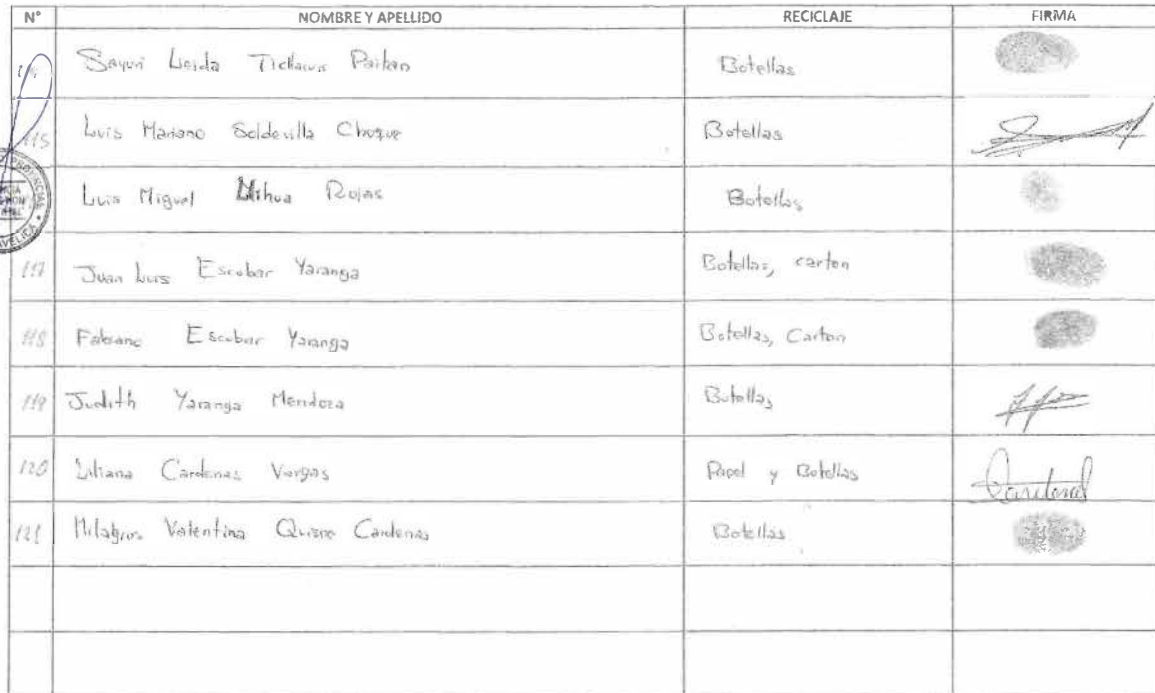 N° NOMBRE Y APELLIDO RECICLAJE FIRMA
Sayuri Botellas
115 Luis Mariano Soldevilla Choque Botellas
Luis Miguel Rojas Botellas
117 Juan Luis Escobar Yaranga Botellas, carton
118 Fabiano Escobar Yaranga Botellas, Carton
119 Judith Yaranga Mendoza Botellas
120 Liliana Cardenas Vargas Papel y Botellas
121 Milagros Valentina Quispe Cardenas Botellas